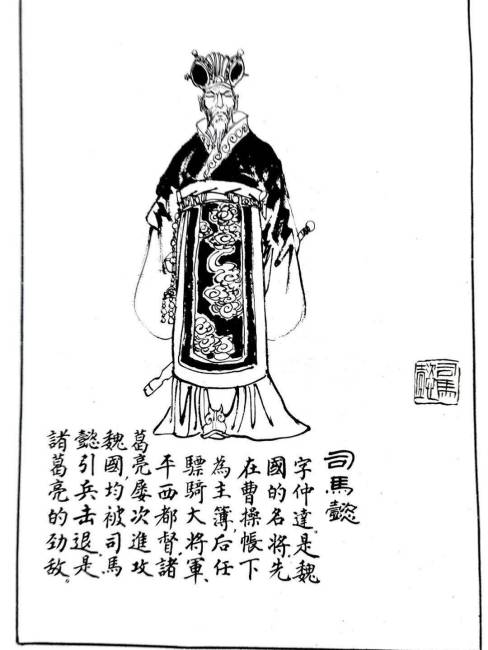 司馬懿
字仲達,是魏
國的名將,先
在曹操帳下
為主簿,后任
驃騎大將軍、
平西都督,諸
葛亮屢次進攻
魏國,均被司馬
懿引兵击退,是
諸葛亮的劲敌。
司馬懿